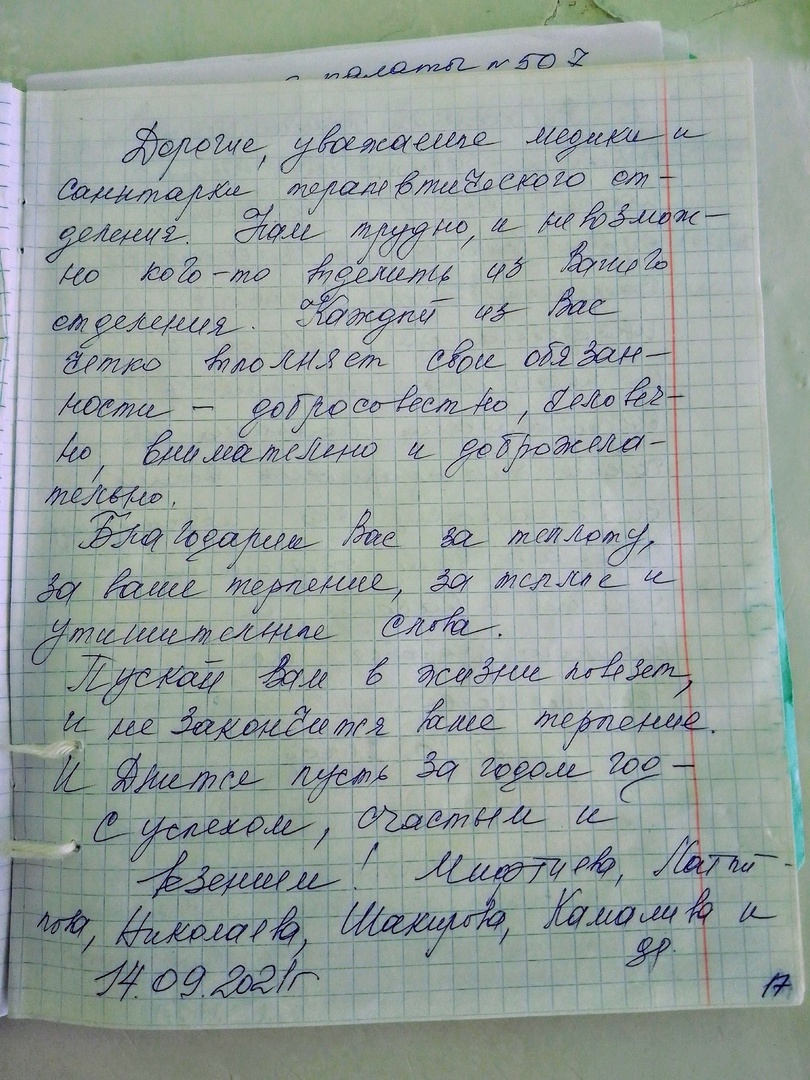 палаты № 507
Дорогие, уважаемые медики и
санитарки терапевтического от-
деления. Нам трудно, и невозмож-
но кого-то выделить из Вашего
отделения. Каждый из Вас
четко выполняет свои обязан-
ности - добросовестно, человеч-
но, внимательно и доброжела-
тельно.
Благодарим Вас за теплоту,
за ваше терпение, за теплые и
утишительные слова.
Пускай Вам в жизни повезет,
и не закончится ваше терпение.
И Длится пусть за годом год -
С успехом, счастьем и
везением! Мифтиева, Латып-
пова, Николаева, Шакирова, Камалиева и
др.
14.09.2021г
17